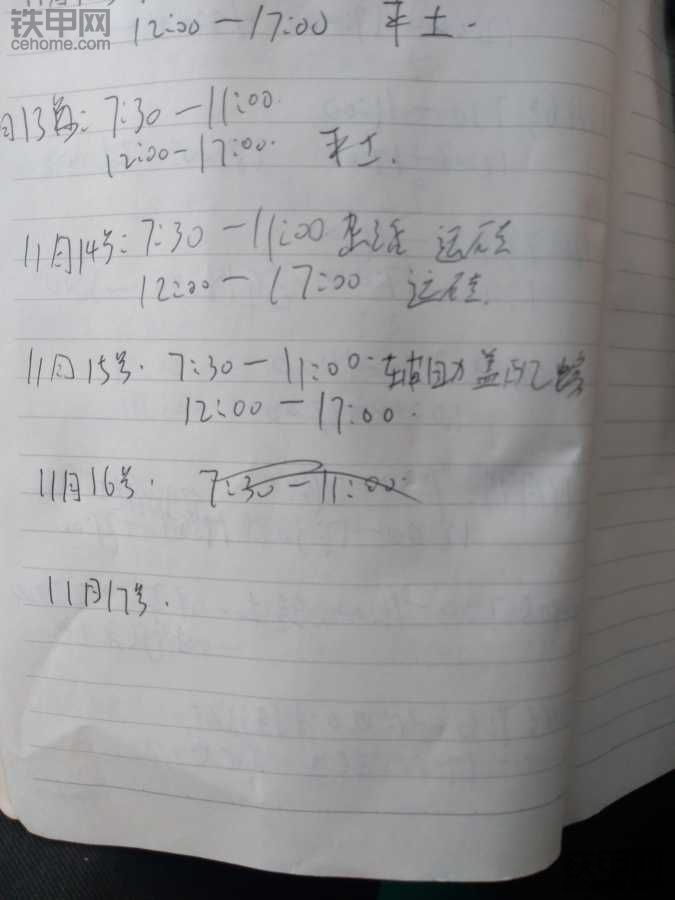 铁甲网
cehome.com
12:00—17:00 平土.
月13号: 7:30—11:00.
12:00-17:00. 平土.
11月14号: 7:30—11:00 运石渣
12:00—17:00 运石渣.
11月15号. 7:30—11:00. 盖
12:00—17:00.
11月16号. 7:30—11:00.
11月17号.
铁甲网